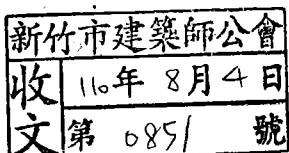 新竹市建築師公會
收文
110年8月4日
第0851號